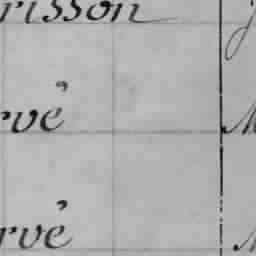 risson
rvé
rvé